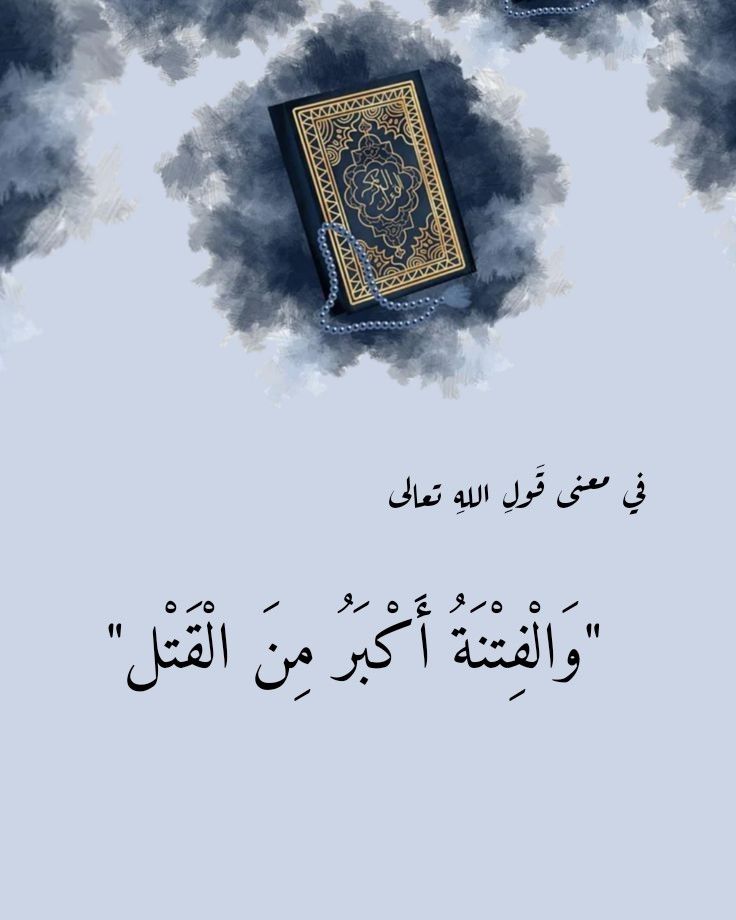 في معنى قَولِ اللهِ تعالى
"وَالْفِتْنَةُ أَكْبَرُ مِنَ الْقَتْل"